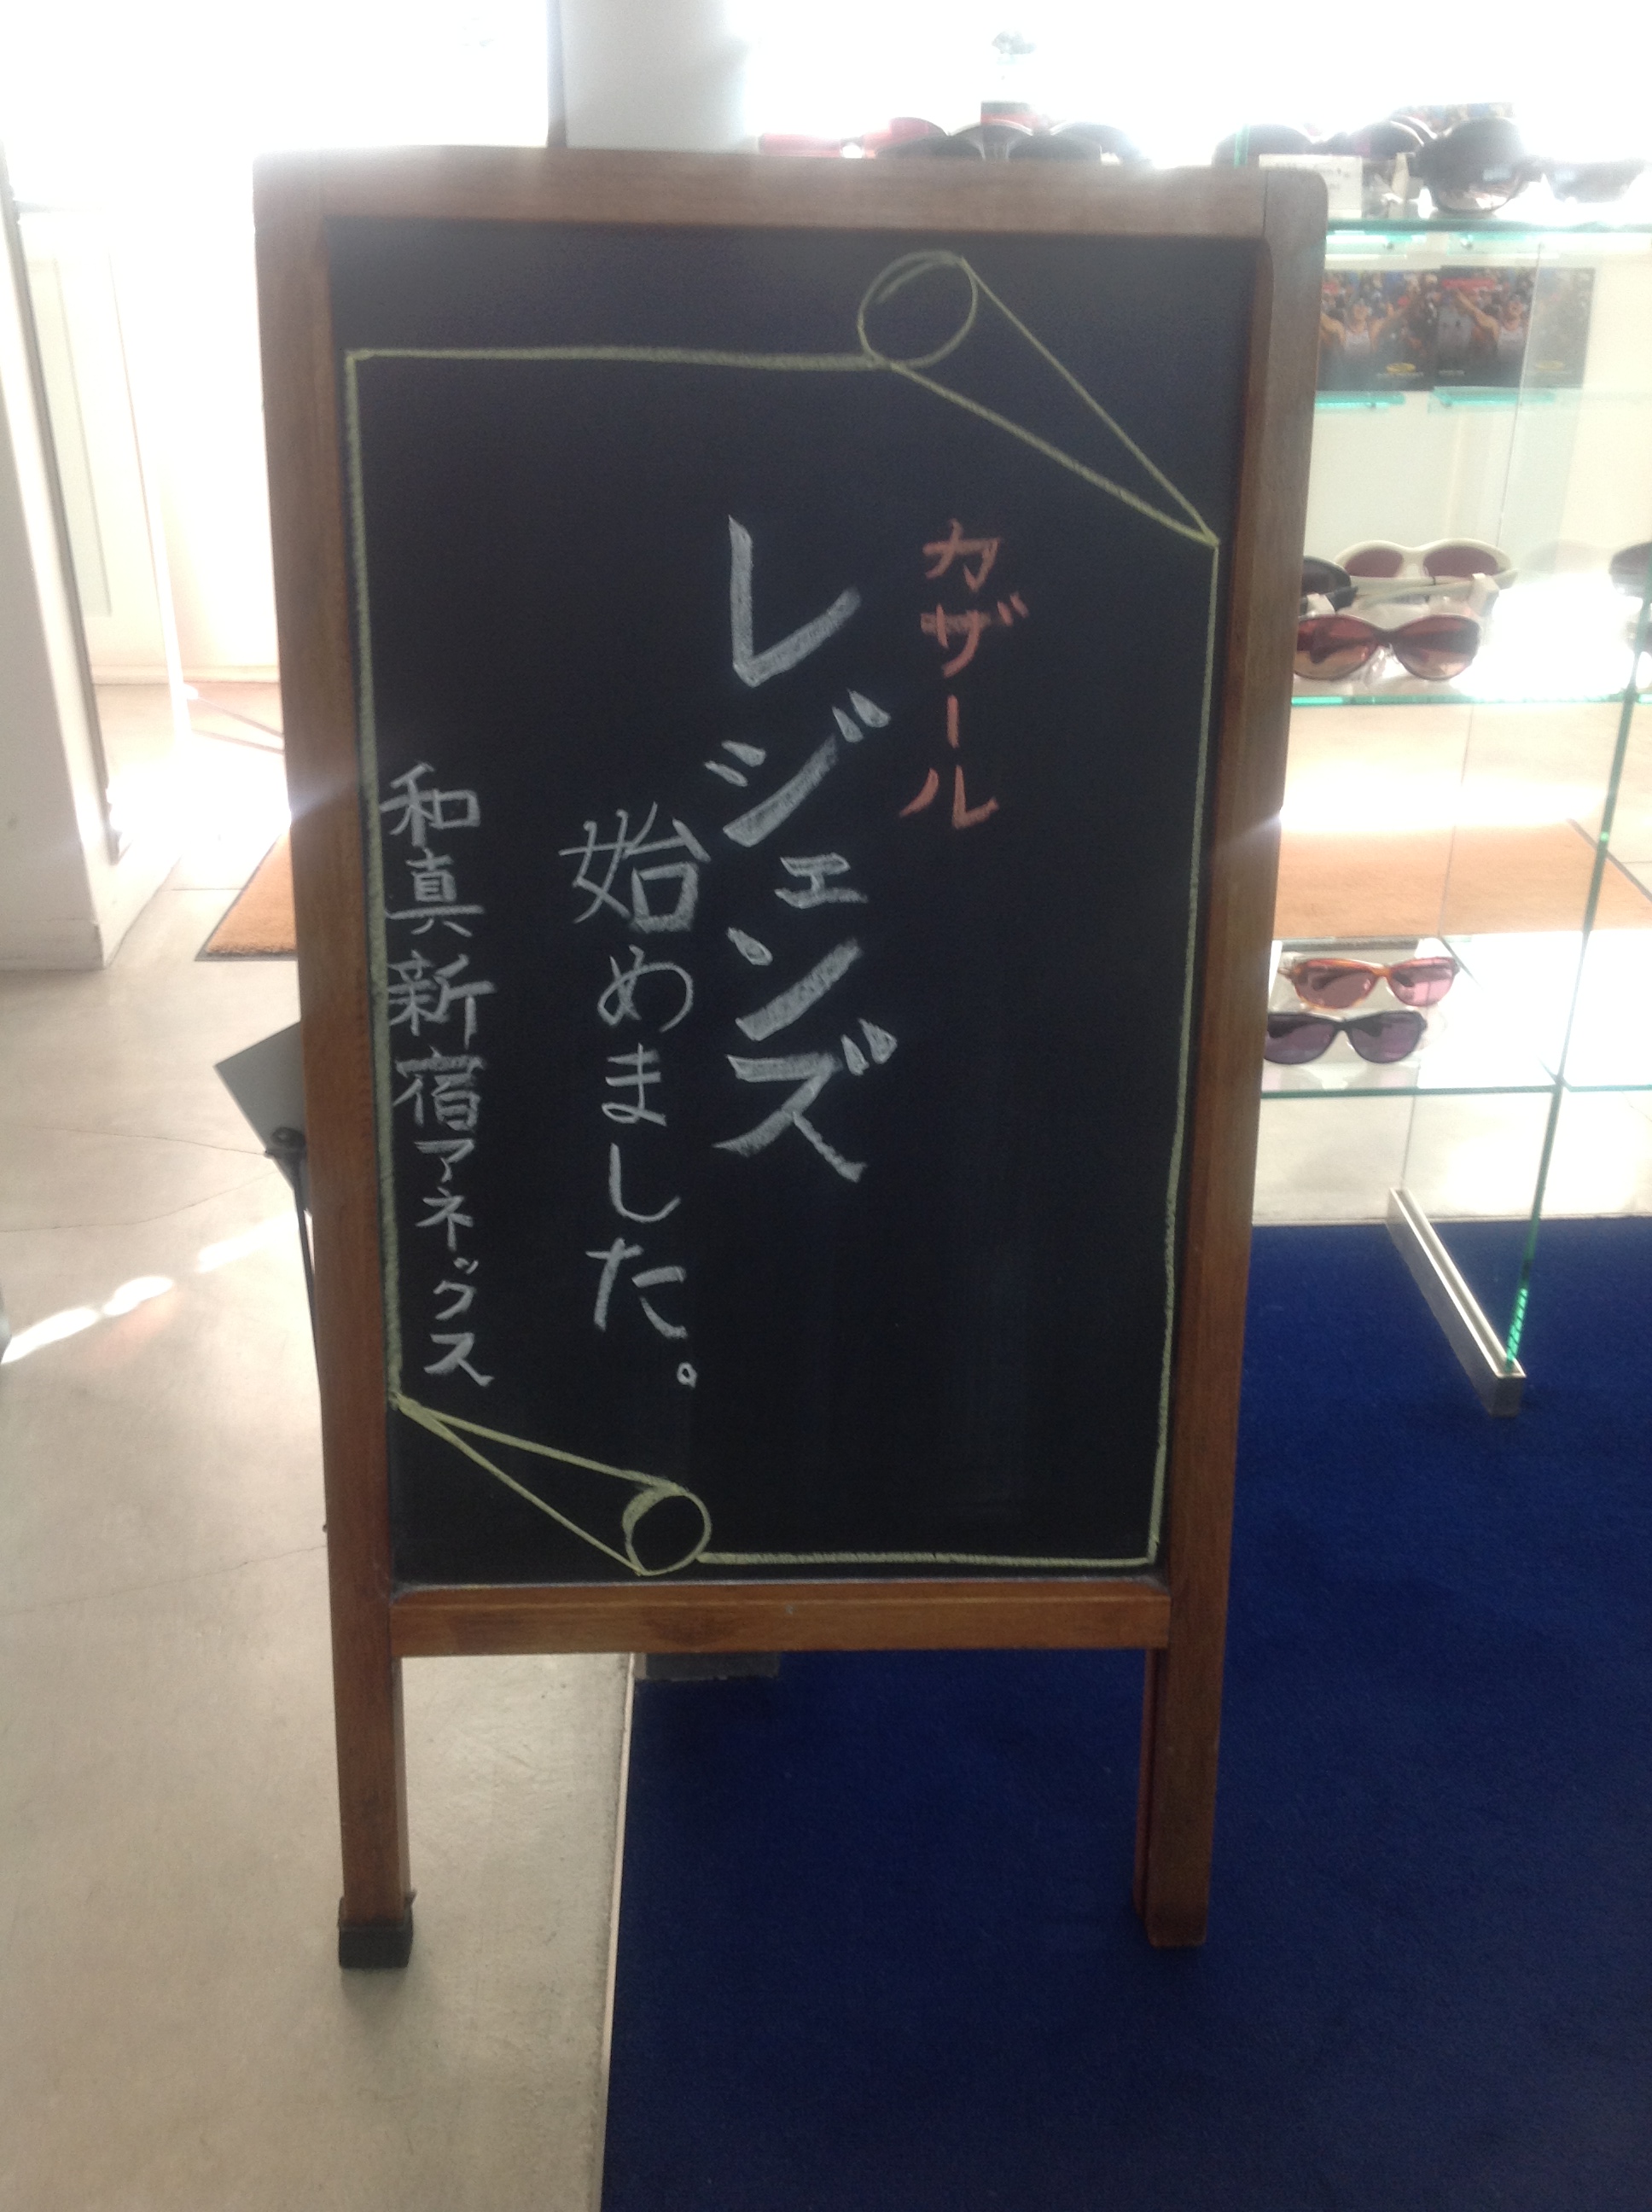 カザール
レジェンズ
始めました。
和真新宿アネックス